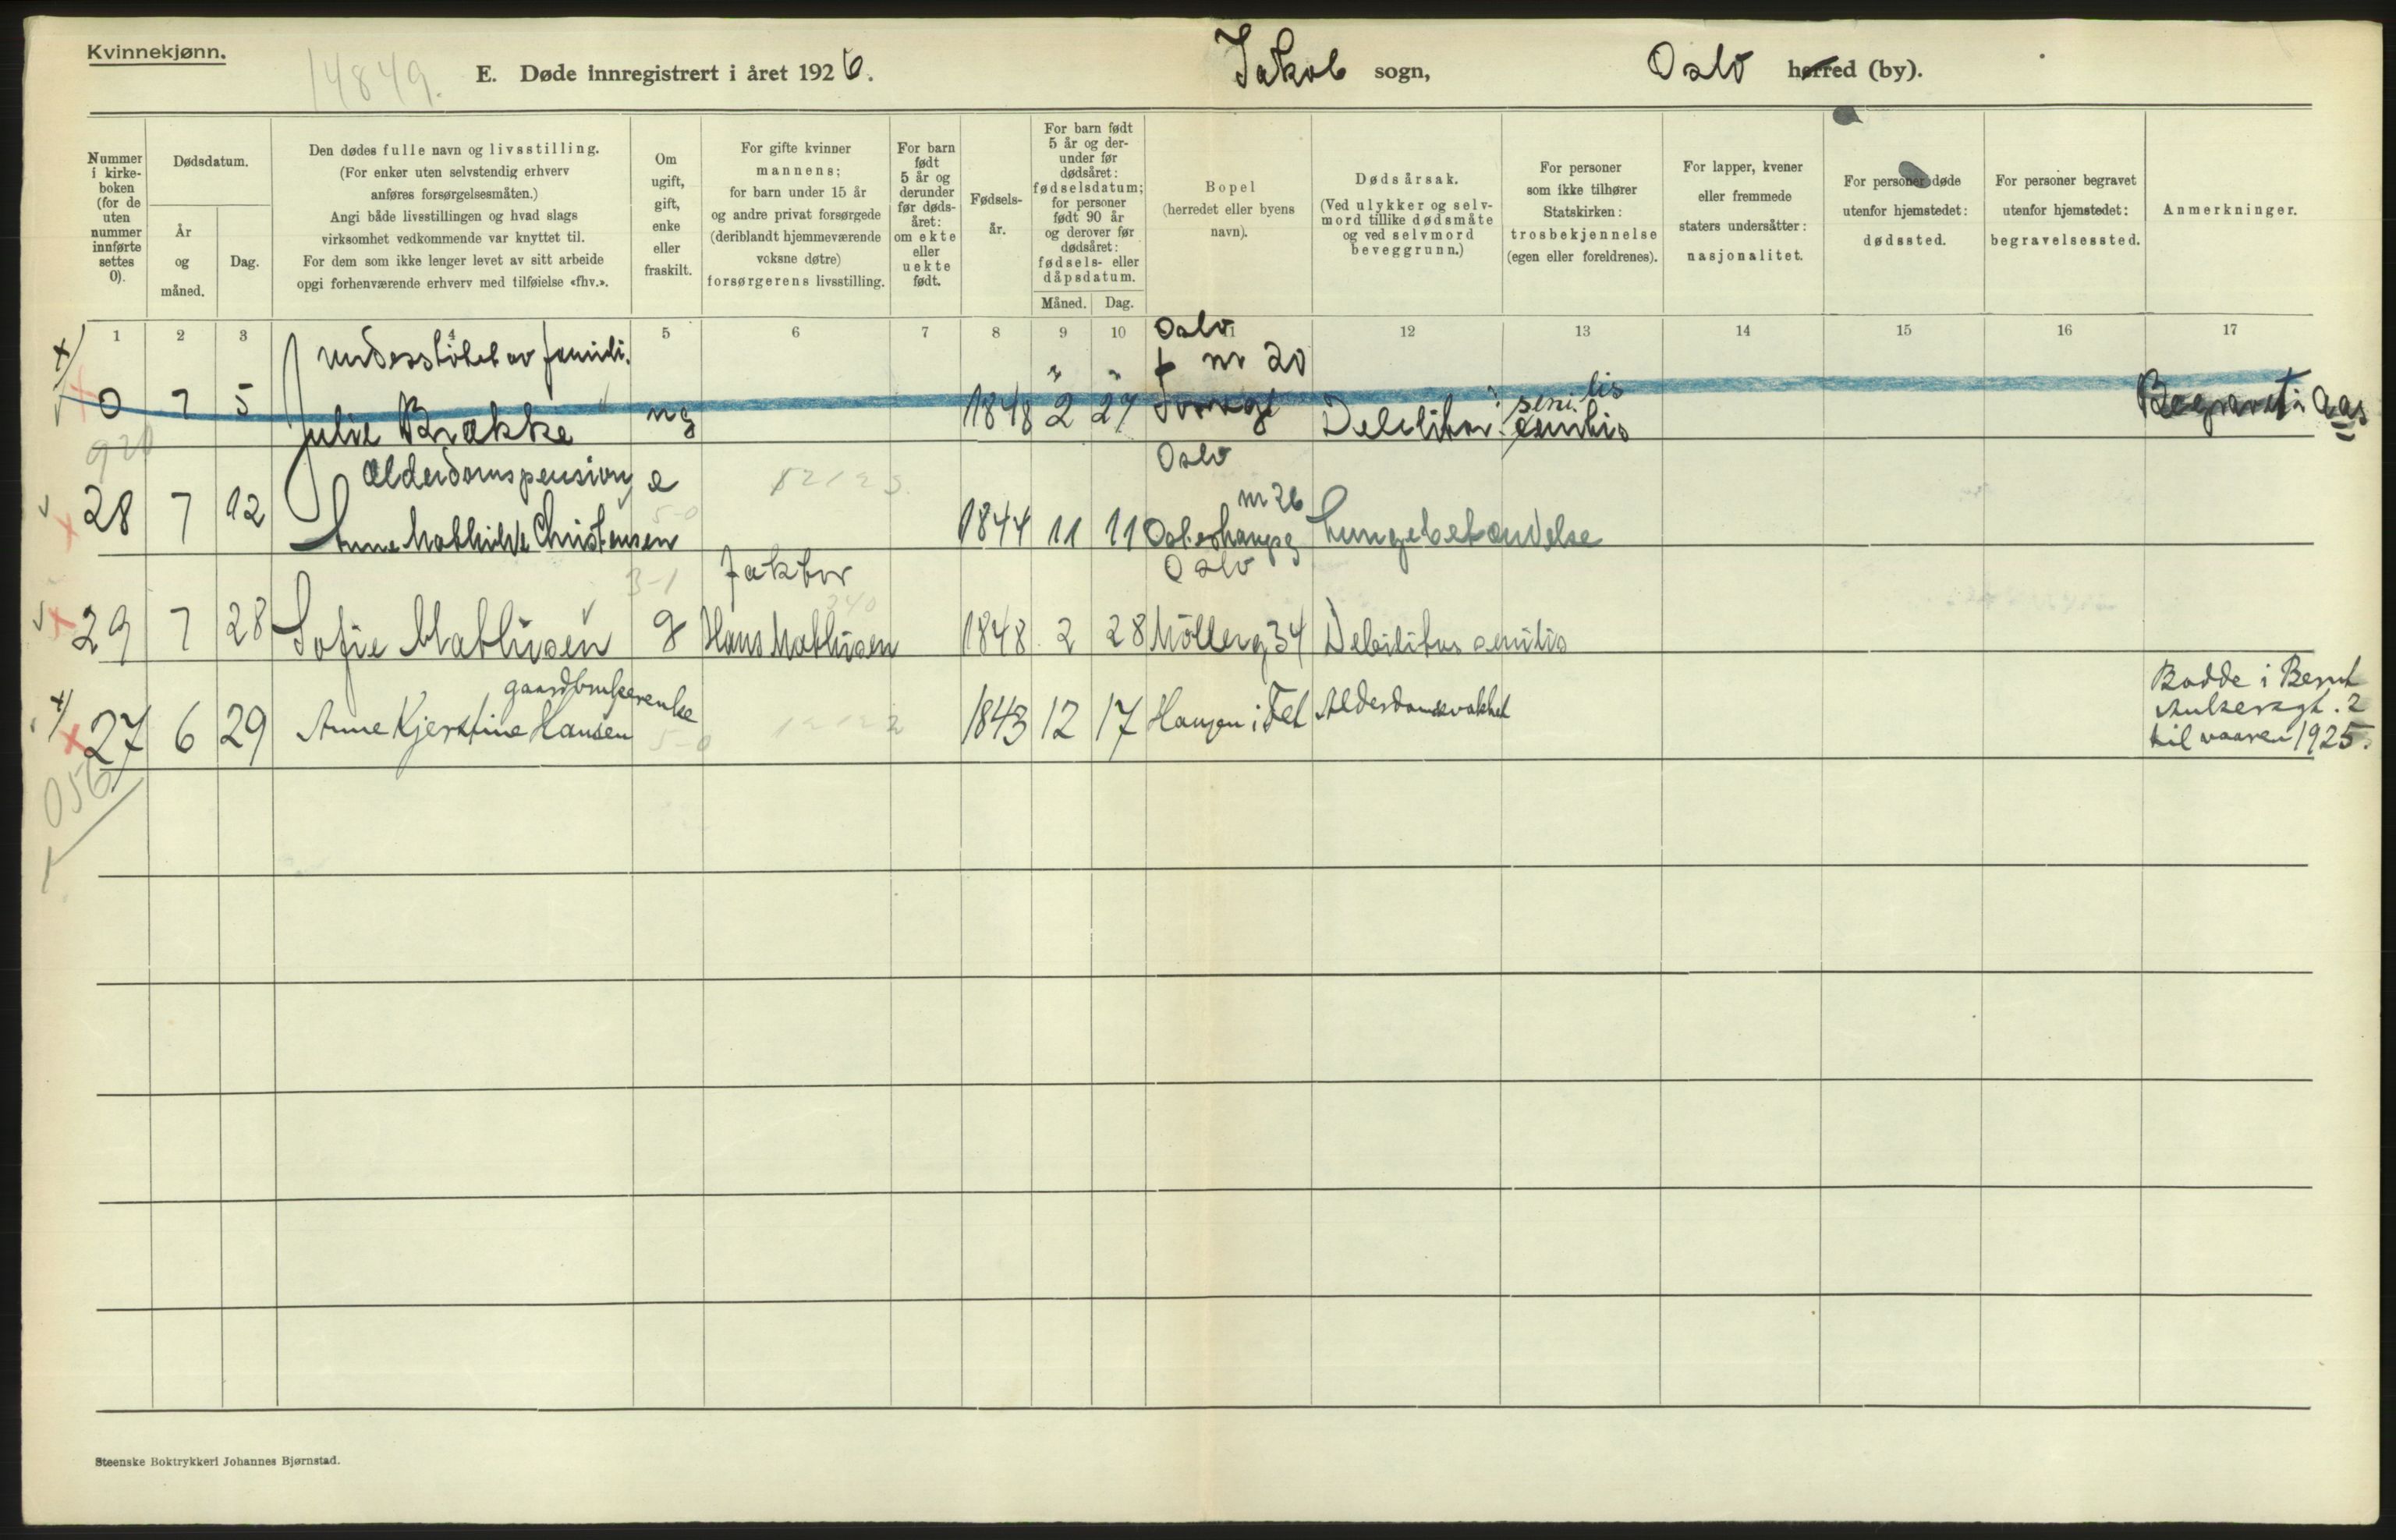 Kvinnekjønn.
14849.
E. Døde innregistrert i året 1926.
Jakob sogn,
Oslo herred (by).
Nummer i kirke- boken (for de uten nummer innførte settes 0).
Dødsdatum.
År og måned.
Dag.
Den dødes fulle navn og livsstilling.
(For enker uten selvstendig erhverv
anføres forsørgelsesmåten.)
Angi både livsstillingen og hvad slags
virksomhet vedkommende var knyttet til.
For dem som ikke lenger levet av sitt arbeide
opgi forhenværende erhverv med tilføielse «fhv.».
Om ugift, gift, enke eller fraskilt.
For gifte kvinner
mannens;
for barn under 15 år
og andre privat forsørgede
(deriblandt hjemmeværende
voksne døtre)
forsørgerens livsstilling.
For barn født 5 år og derunder før døds- året: om ekte eller uekte født.
Fødsels- år.
For barn født
5 år og der-
under før
dødsåret:
fødselsdatum;
for personer
født 90 år
og derover før
dødsåret:
fødsels- eller
dåpsdatum.
Måned. Dag.
Bopel
(herredet eller byens
navn).
Dødsårsak.
(Ved ulykker og selv-
mord tillike dødsmåte
og ved selvmord
beveggrunn.)
For personer
som ikke tilhører
Statskirken:
trosbekjennelse
(egen eller foreldrenes).
For lapper, kvener
eller fremmede
staters undersåtter:
nasjonalitet.
For personer døde
utenfor hjemstedet:
dødssted.
For personer begravet
utenfor hjemstedet:
begravelsessted.
Anmerkninger.
1 2 3 4 5 6 7 8 9 10 11 12 13 14 15 16 17
understøttet av famili. Oslo
nr 20
0 7 5 Julie Brække ug 1848 2 27 Debilitas senilis Begravet i Aas
920
Alderdomspension e Oslo
nr 26
28 7 12 Anne Mathilde Christensen 5-0 1844 11 11 Osterhausg Lungebetændelse
3-1 faktor Oslo
240
29 7 28 Sofie Mathisen g Hans Mathisen 1848 2 28 Møllerg 34 Debilitas senilis
gaardbrukerenke
27 6 29 Anne Kjerstine Hansen 5-0 1843 12 17 Haugen i Fet Alderdomssvakhet
Bodde i Bernt
Ankersgt. 2
til vaaren 1925.
056
Steenske Boktrykkeri Johannes Bjørnstad.